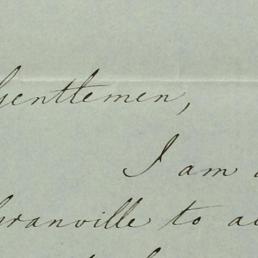 Gentlemen,
I am
Granville to